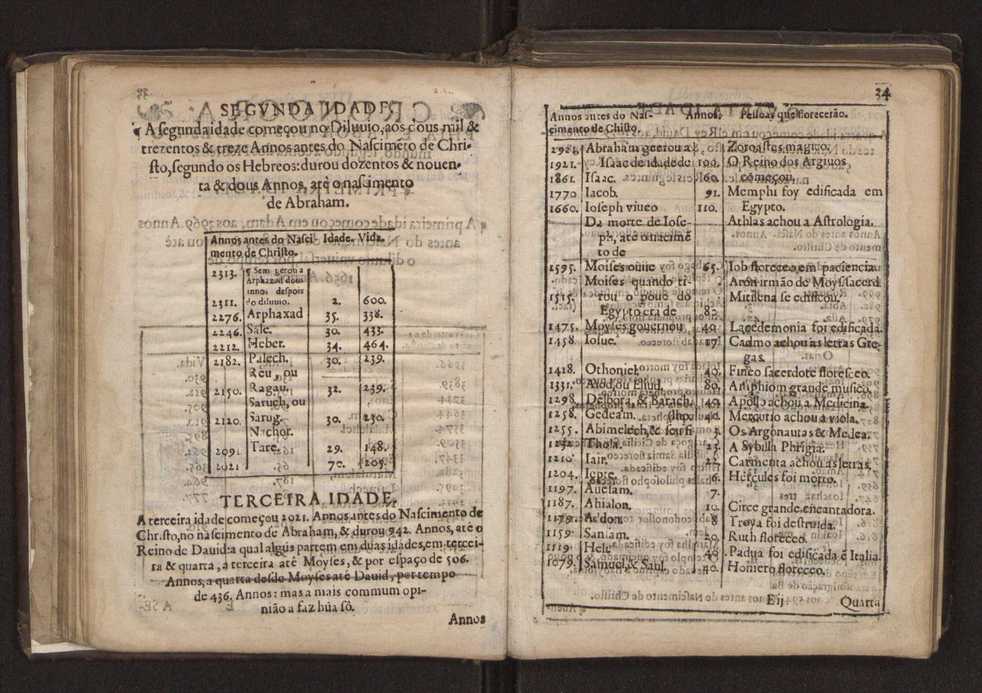 SEGVNDA IDADE.
¶ A segunda idade começou no Diluuio, aos dous mil &
trezentos & treze Annos antes do Nascimẽto de Chri-
sto, segundo os Hebreos: durou dozentos & nouen-
ta & dous Annos, atè o nascimento
de Abraham.
Annos antes do Nasci- Idade. Vida.
mento de Christo.
2313. ¶ Sem gerou a
Arphaxad dous
annos despois
2311. do diluuio. 2. 600.
2276. Arphaxad 35. 338.
2246. Sale. 30. 433.
2212. Heber. 34. 464.
2182. Palech. 30. 239.
Reu, ou
2150. Ragau. 32. 239.
Saruch, ou
2120. Sarug. 30. 230.
Nachor.
2091. Tare. 29. 148.
2021 70. 205.
TERCEIRA IDADE.
A terceira idade começou 2021. Annos antes do Nascimento de
Christo, no nascimento de Abraham, & durou 942. Annos, atè o
Reino de Dauid: a qual algũs partem em duas idades, em tercei-
ra & quarta, a terceira atè Moyses, & por espaço de 506.
Annos, a quarta desde Moyses atè Dauid, por tempo
de 436. Annos: mas a mais commum opi-
nião a faz hũa sò.
Annos
34
Annos antes do Nas- Annos. Pessoas que florecerão.
cimento de Christo.
Abraham gerou a Zoroastes magico.
1921. Isaac de idade de 100. O Reino dos Argiuos
1861. Isaac. 60. começou.
1770 Iacob. 91. Memphi foy edificada em
1660. Ioseph viueo 110. Egypto.
Da morte de Iose- Athlas achou a Astrologia.
ph, atè o nacimẽ
to de
1595. Moises ouue 65. Iob floreceo em paciencia
Moises quando ti- Aron irmão de Moyses sacerd.
1515. rou o pouo do
Egypto era de 80.
1475. Moyses gouernou 40. Lacedemonia foi edificada.
1458. Iosue. 17. Cadmo achou as letras Gre-
gas.
1418. Othoniel. 40. Fineo sacerdote floresceo.
1331. Aiod, ou Eliud. 80. Amphiom grande musico.
1298. Debbora, & Barach. Apollo achou a Medicina.
1258. Gedeam. 40. Mercurio achou a viola.
1255. Abimelech, & 3. Os Argonautas & Medea.
Thola. A Sybilla Phrigia.
1210. Iair. Carmenta achou as letras.
1204. Iepte. 6. Hercules foi morto.
1197. 7.
1187. Ahialon. 10. Circe grande encantadora.
8 Troya foi destruida.
1159. 20. Ruth floreceo.
1119. Hele 40. Padua foi edificada ẽ Italia.
1079. Samuel & Saul. 40. Homero floreceo.
E ij Quarta